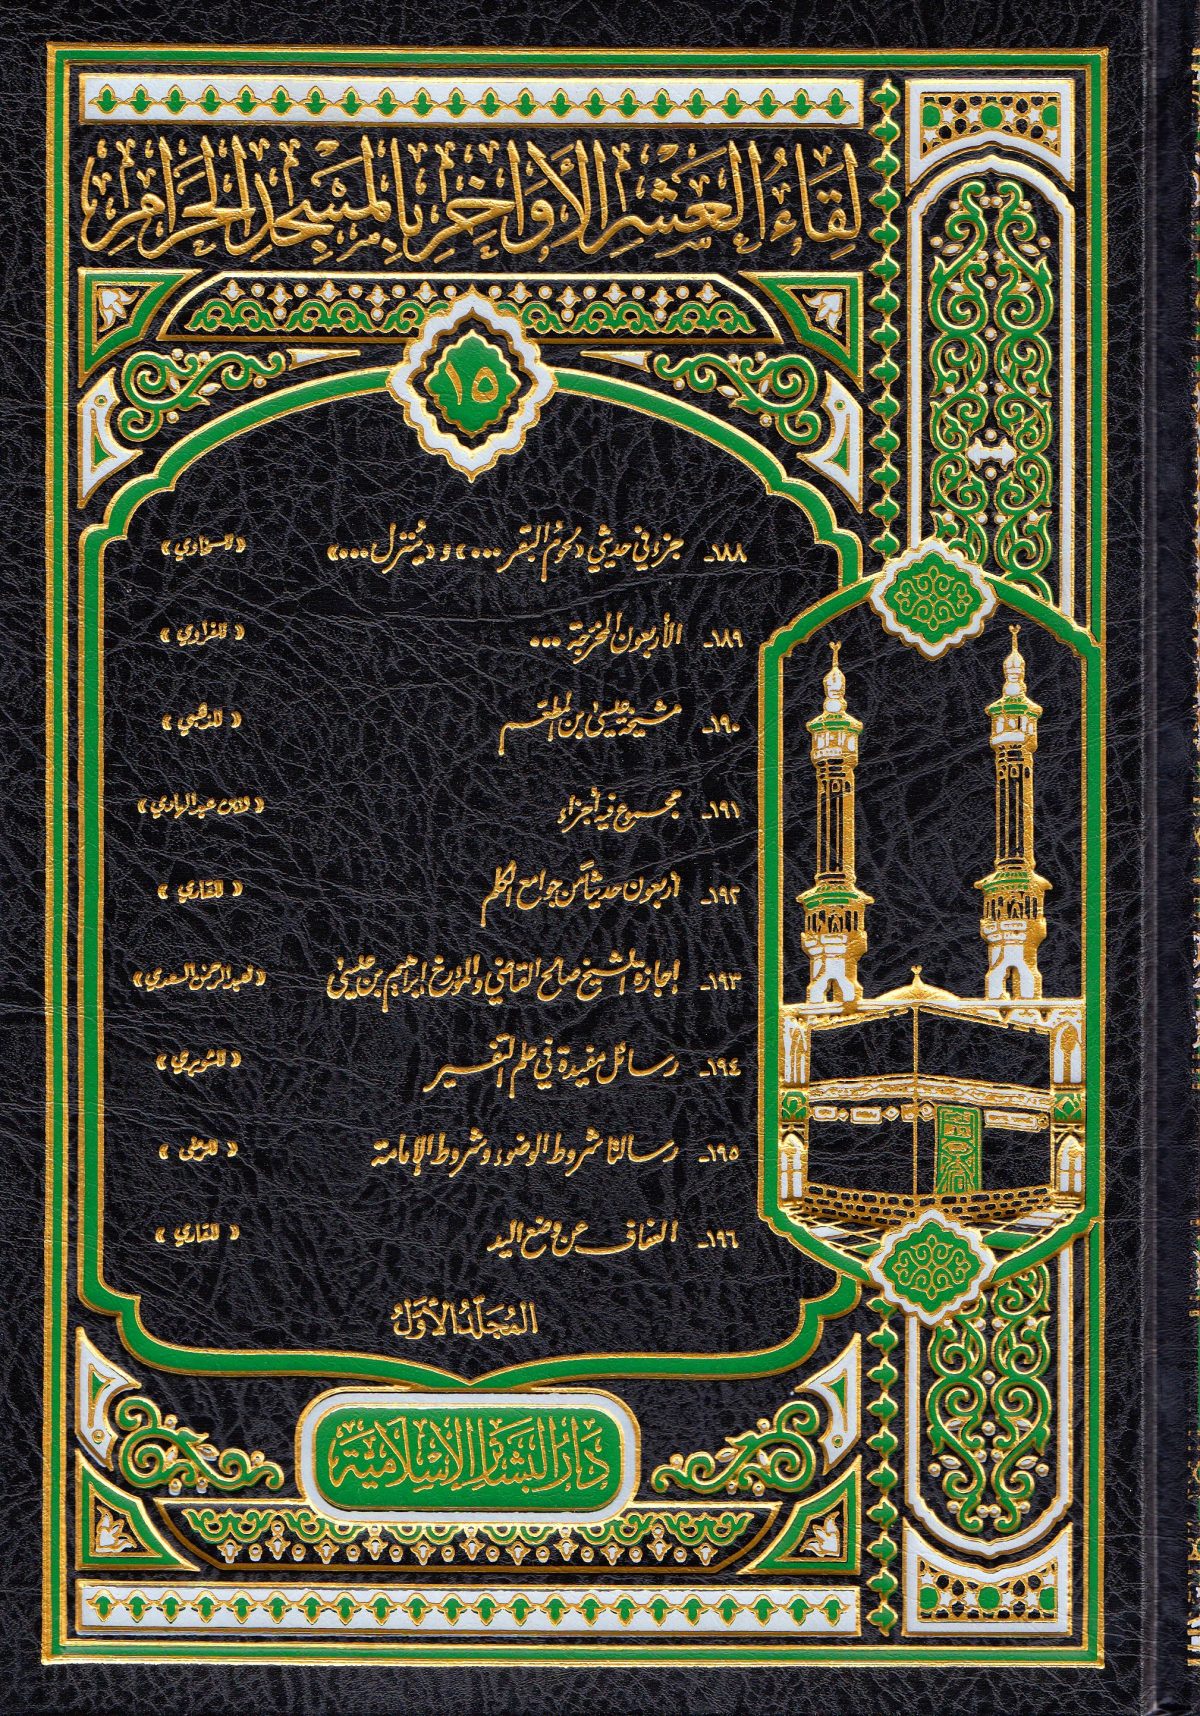 لِقَاءُ العَشْرِ الأَوَاخِرِ بِالمَسْجِدِ الحَرَامِ
١٥
١٨٨ـ جزء في حديثي «لحوم البقر ...» و«يُنزل ...» «للسخاوي»
١٨٩ـ الأربعون المخرجة ... «للفراوي»
١٩٠ـ مشيخة عيسى بن المطعّم «للذهبي»
١٩١ـ مجموع فيه أجزاء «لابن عبد الهادي»
١٩٢ـ أربعون حديثاً من جوامع الكلم «للقاري»
١٩٣ـ إجازة الشيخ صالح القاضي والمؤرخ إبراهيم بن عيسى «لعبد الرحمن السعدي»
١٩٤ـ رسائل مفيدة في علم التفسير
١٩٥ـ رسالتا شروط الوضوء وشروط الإمامة «للرملي»
١٩٦ـ عن وضع اليد «للقاري»
المُجَلّدُ الأوّلُ
دَارُ البَشَائِرِ الإِسْلَامِيَّة